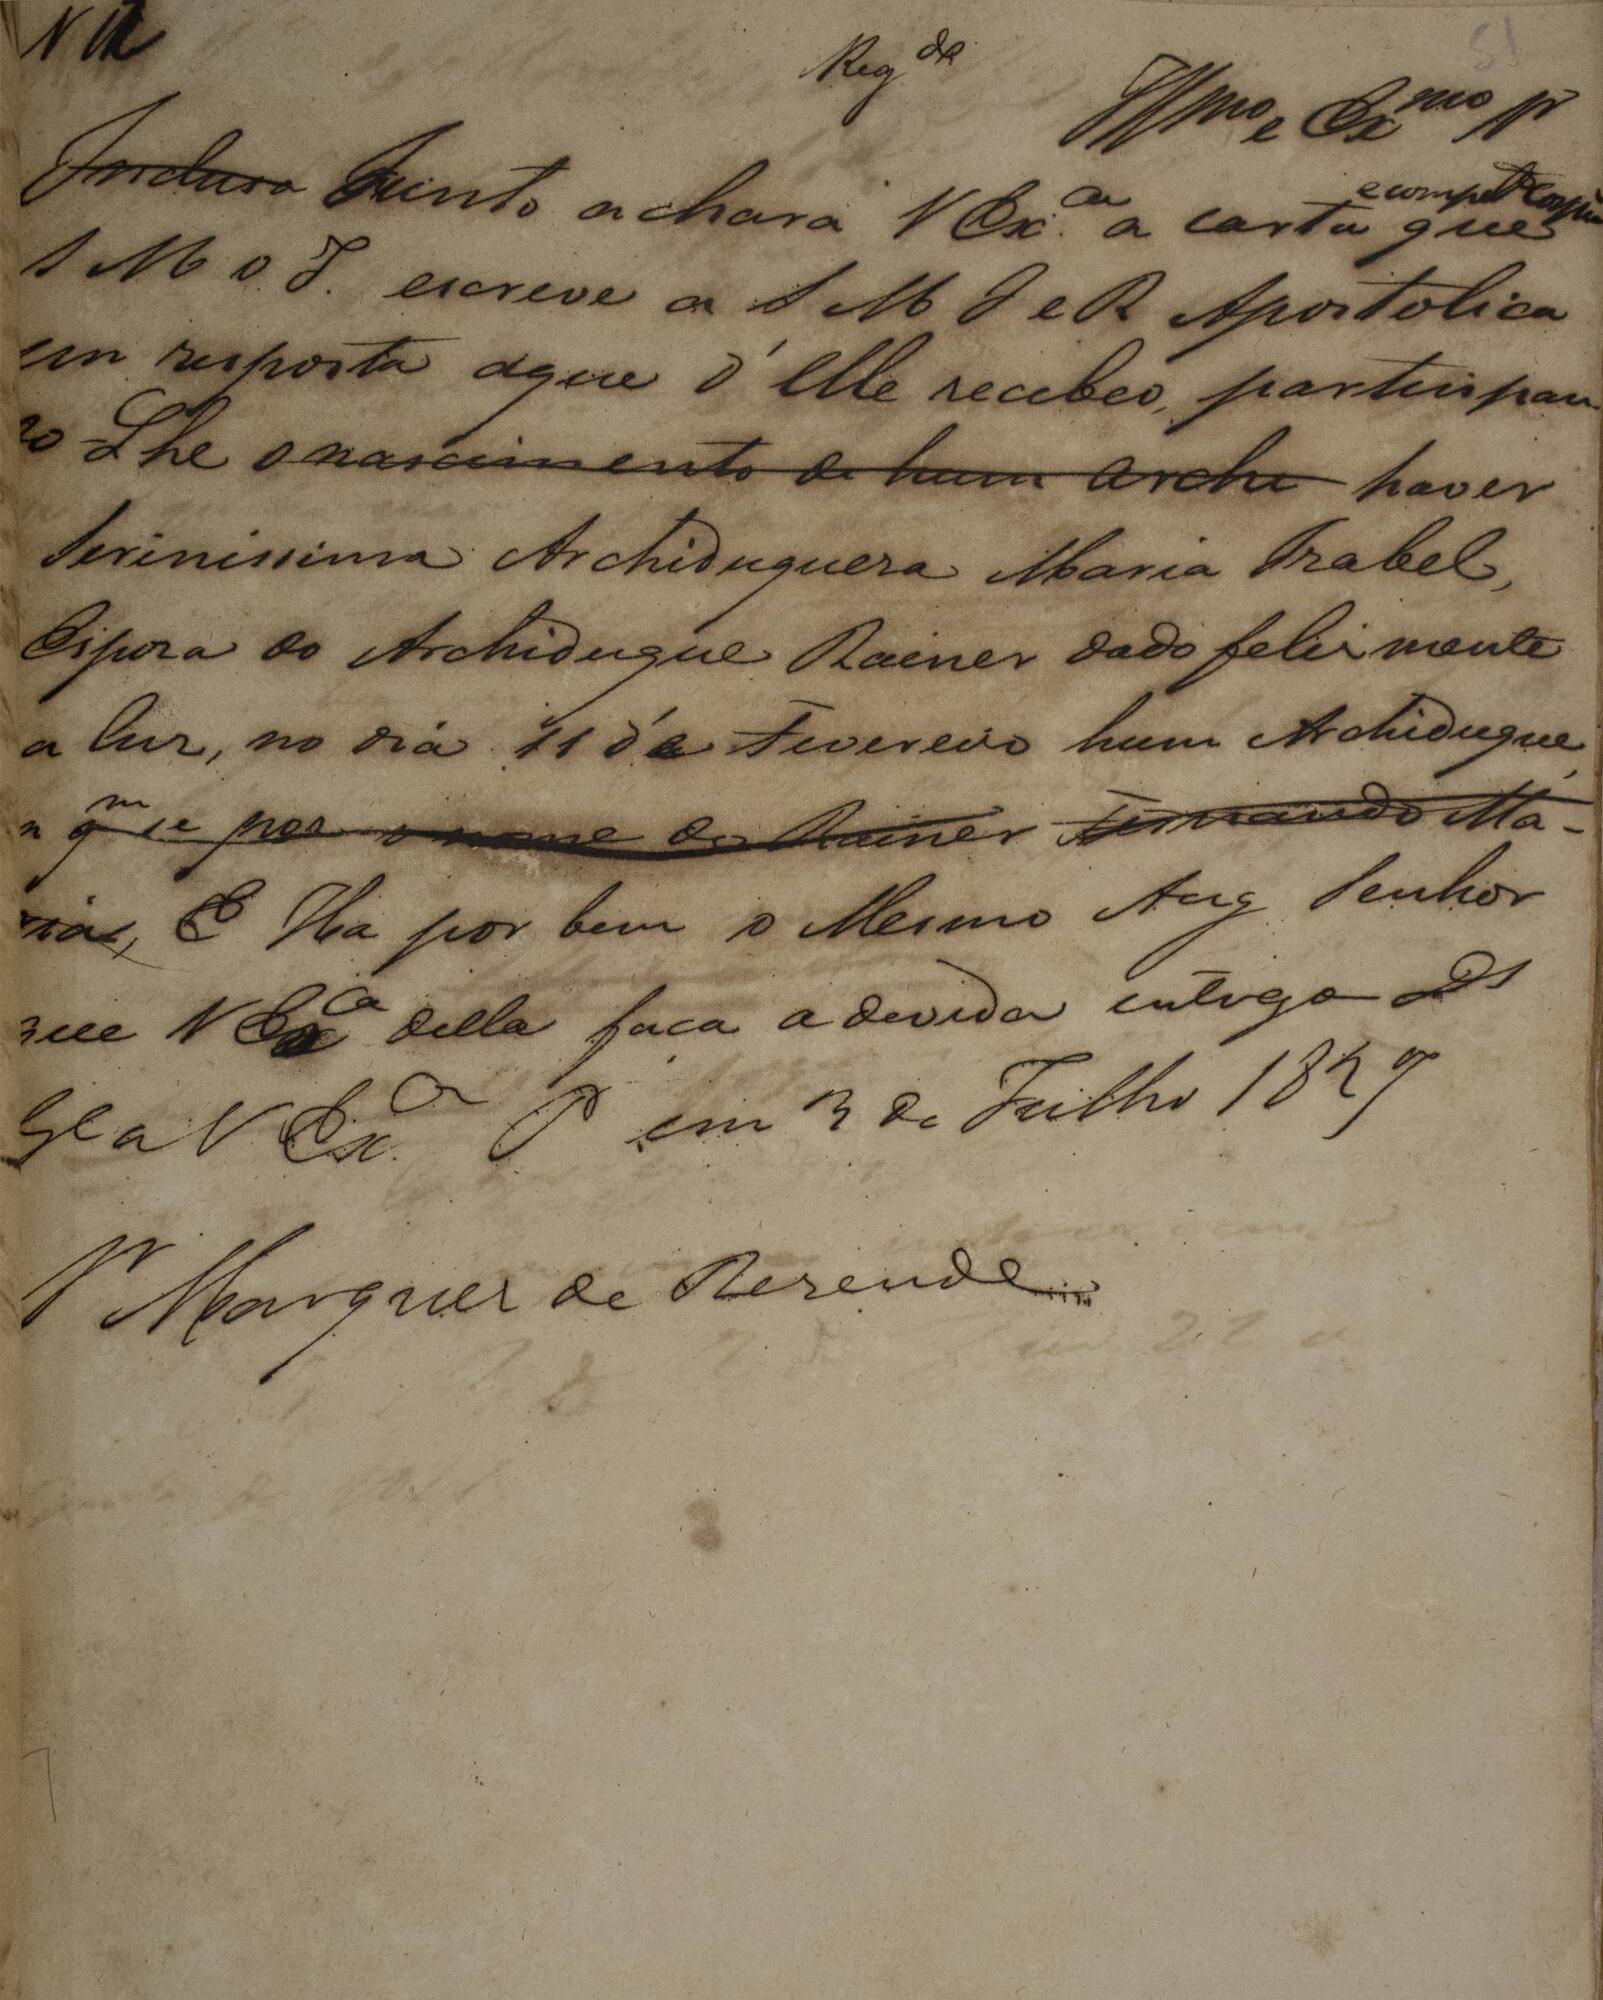 N 12
51
Reg.do
Illmo e Exmo Sr
Incluso Junto achará V Ex.ca a carta e comp.te copia que
S M o I. escreve a S M I e R Apostolica
em resposta aque d'Elle recebeo, participan
do-Lhe o nascimento de hum Archi haver
Serinissima Archiduqueza Maria Izabel,
Espoza do Archiduque Rainer dado felizmente
a luz, no dia 11 de Fevereiro hum Archiduque,
a qm se poz o nome de Rainer Fernando Ma-
ria, E Ha por bem o Mesmo Aug Senhor
que V Exca della faça a devida entrega Ds
Ge a V Ex.ca P em 3 de Julho 1827
Sr Marquez de Rezende